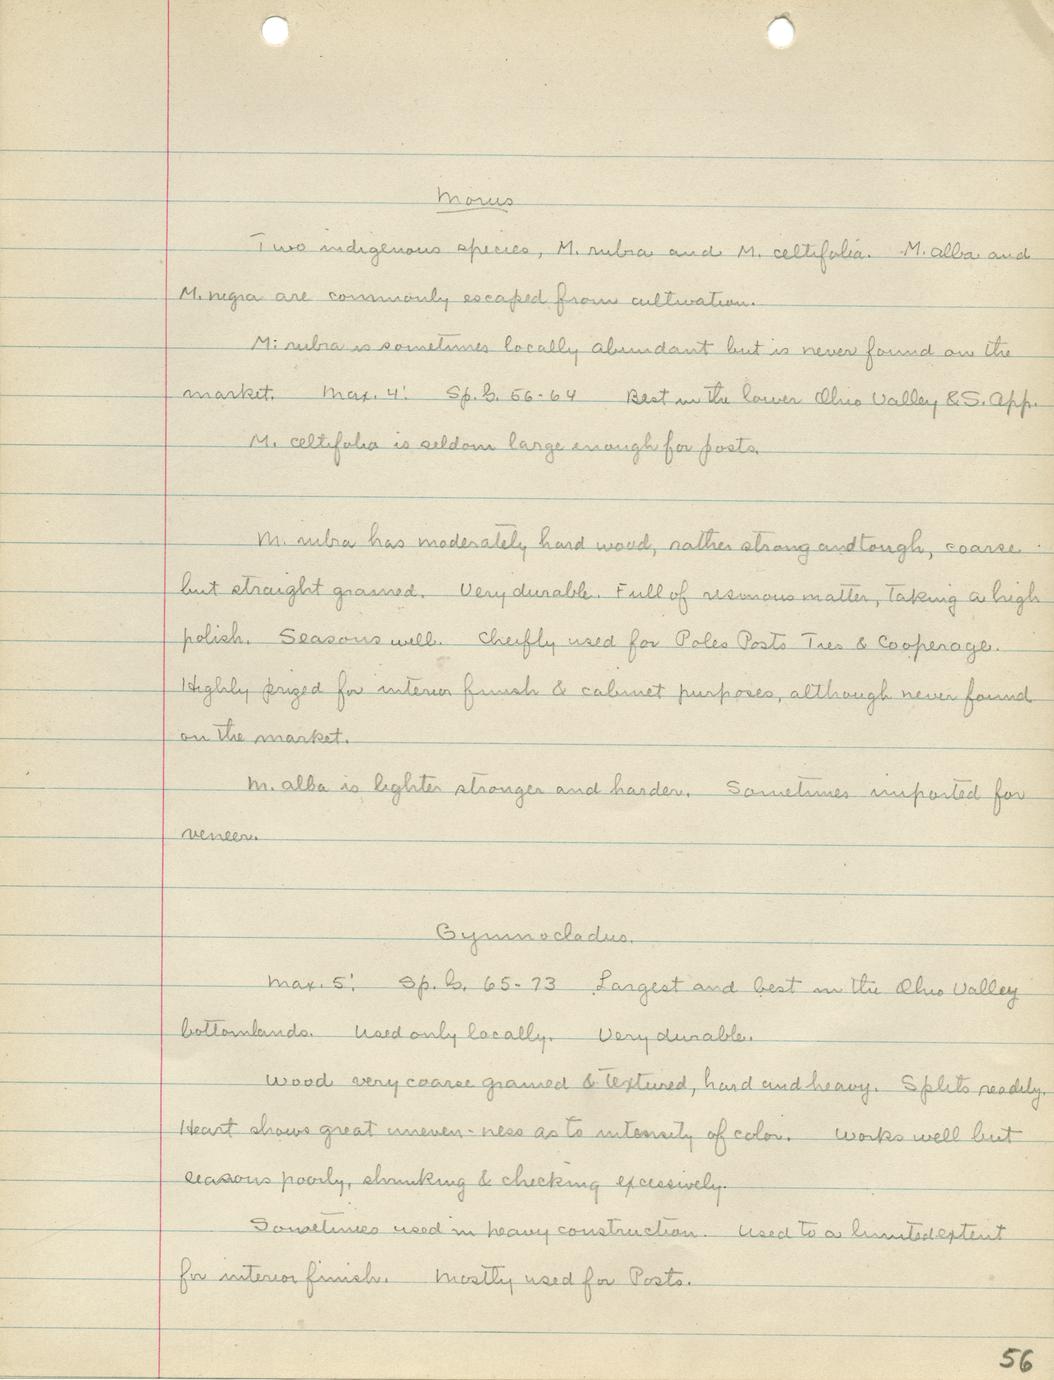 Morus
Two indigenous species, M. rubra and M. celtifolia. M. alba and
M. nigra are commonly escaped from cultivation.
M. rubra is sometimes locally abundant but is never found on the
market. Max. 4' Sp. G. 56-64 Best in the lower Ohio Valley & S. App.
M. celtifolia is seldom large enough for posts.
M. rubra has moderately hard wood, rather strong and tough, coarse
but straight grained. Very durable. Full of resinous matter, taking a high
polish. Seasons well. Cheifly used for Poles Posts Ties & Cooperage.
Highly prized for interior finish & cabinet purposes, although never found
on the market.
M. alba is lighter stronger and harder. Sometimes imported for
veneer.
Gymnocladus.
Max. 5' Sp. G. 65-73 Largest and best in the Ohio Valley
bottomlands. Used only locally. Very durable.
Wood very coarse grained & textured, hard and heavy. Splits readily.
Heart shows great uneven-ness as to intensity of color. Works well but
seasons poorly, shrinking & checking excessively.
Sometimes used in heavy construction. Used to a limited extent
for interior finish. Mostly used for Posts.
56